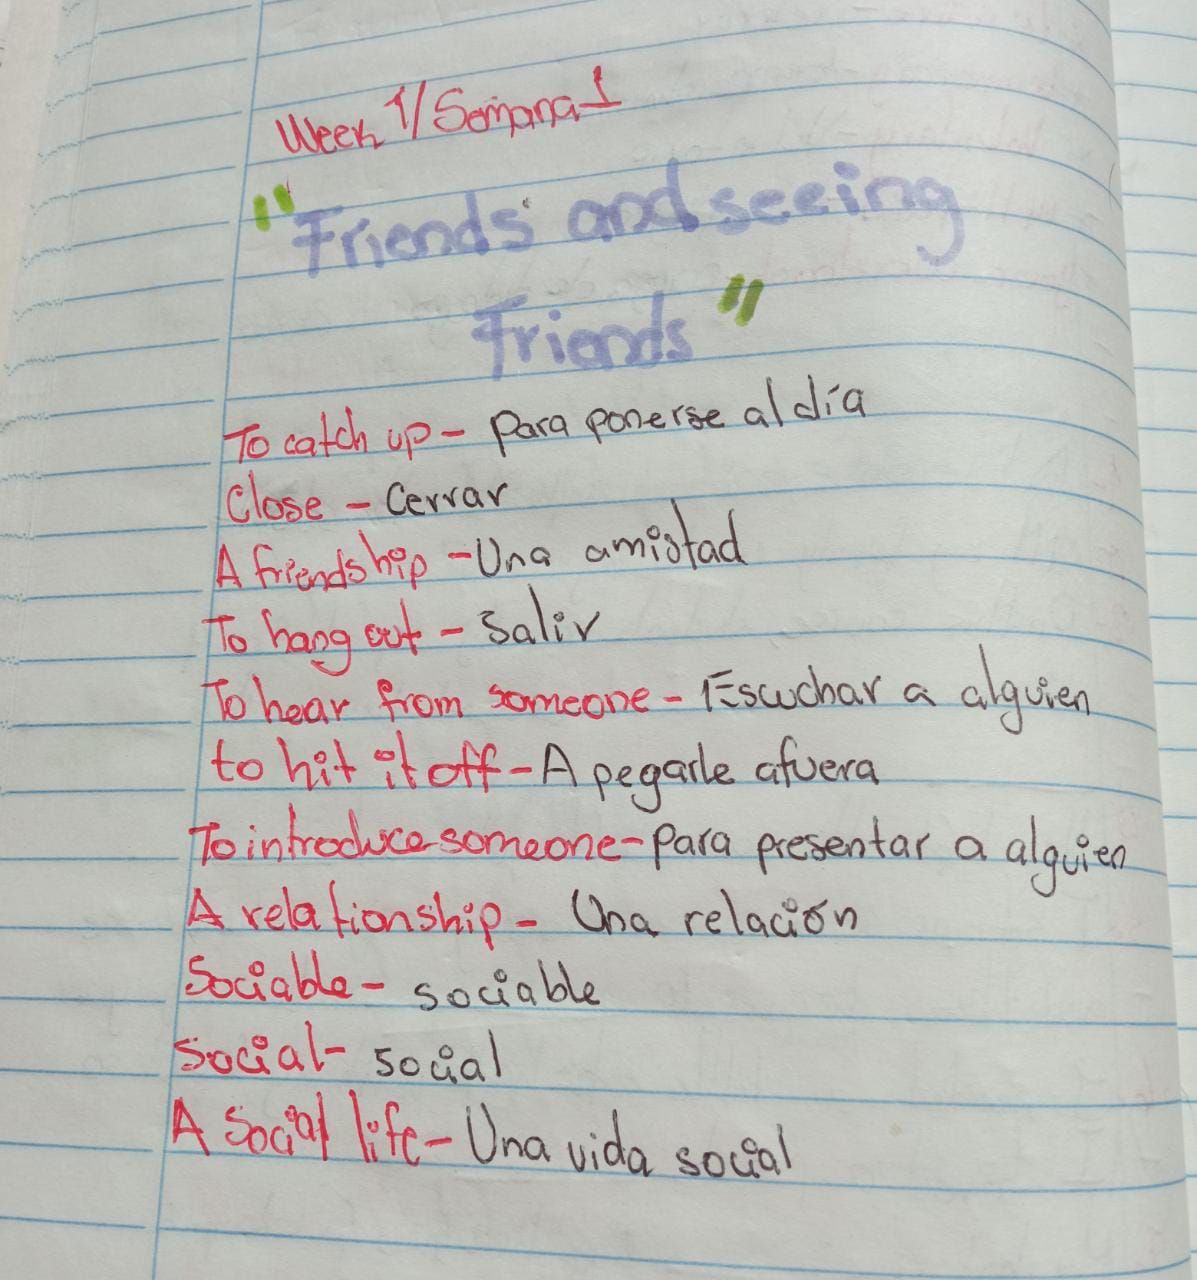 Week 1/Semana 1
"Friends and seeing
Friends"
To catch up - Para ponerse al día
Close - Cerrar
A friendship - Una amistad
To hang out - Salir
To hear from someone - Escuchar a alguien
to hit it off - A pegarle afuera
To introduce someone - Para presentar a alguien
A relationship - Una relación
Sociable - sociable
Social - social
A Social life - Una vida social